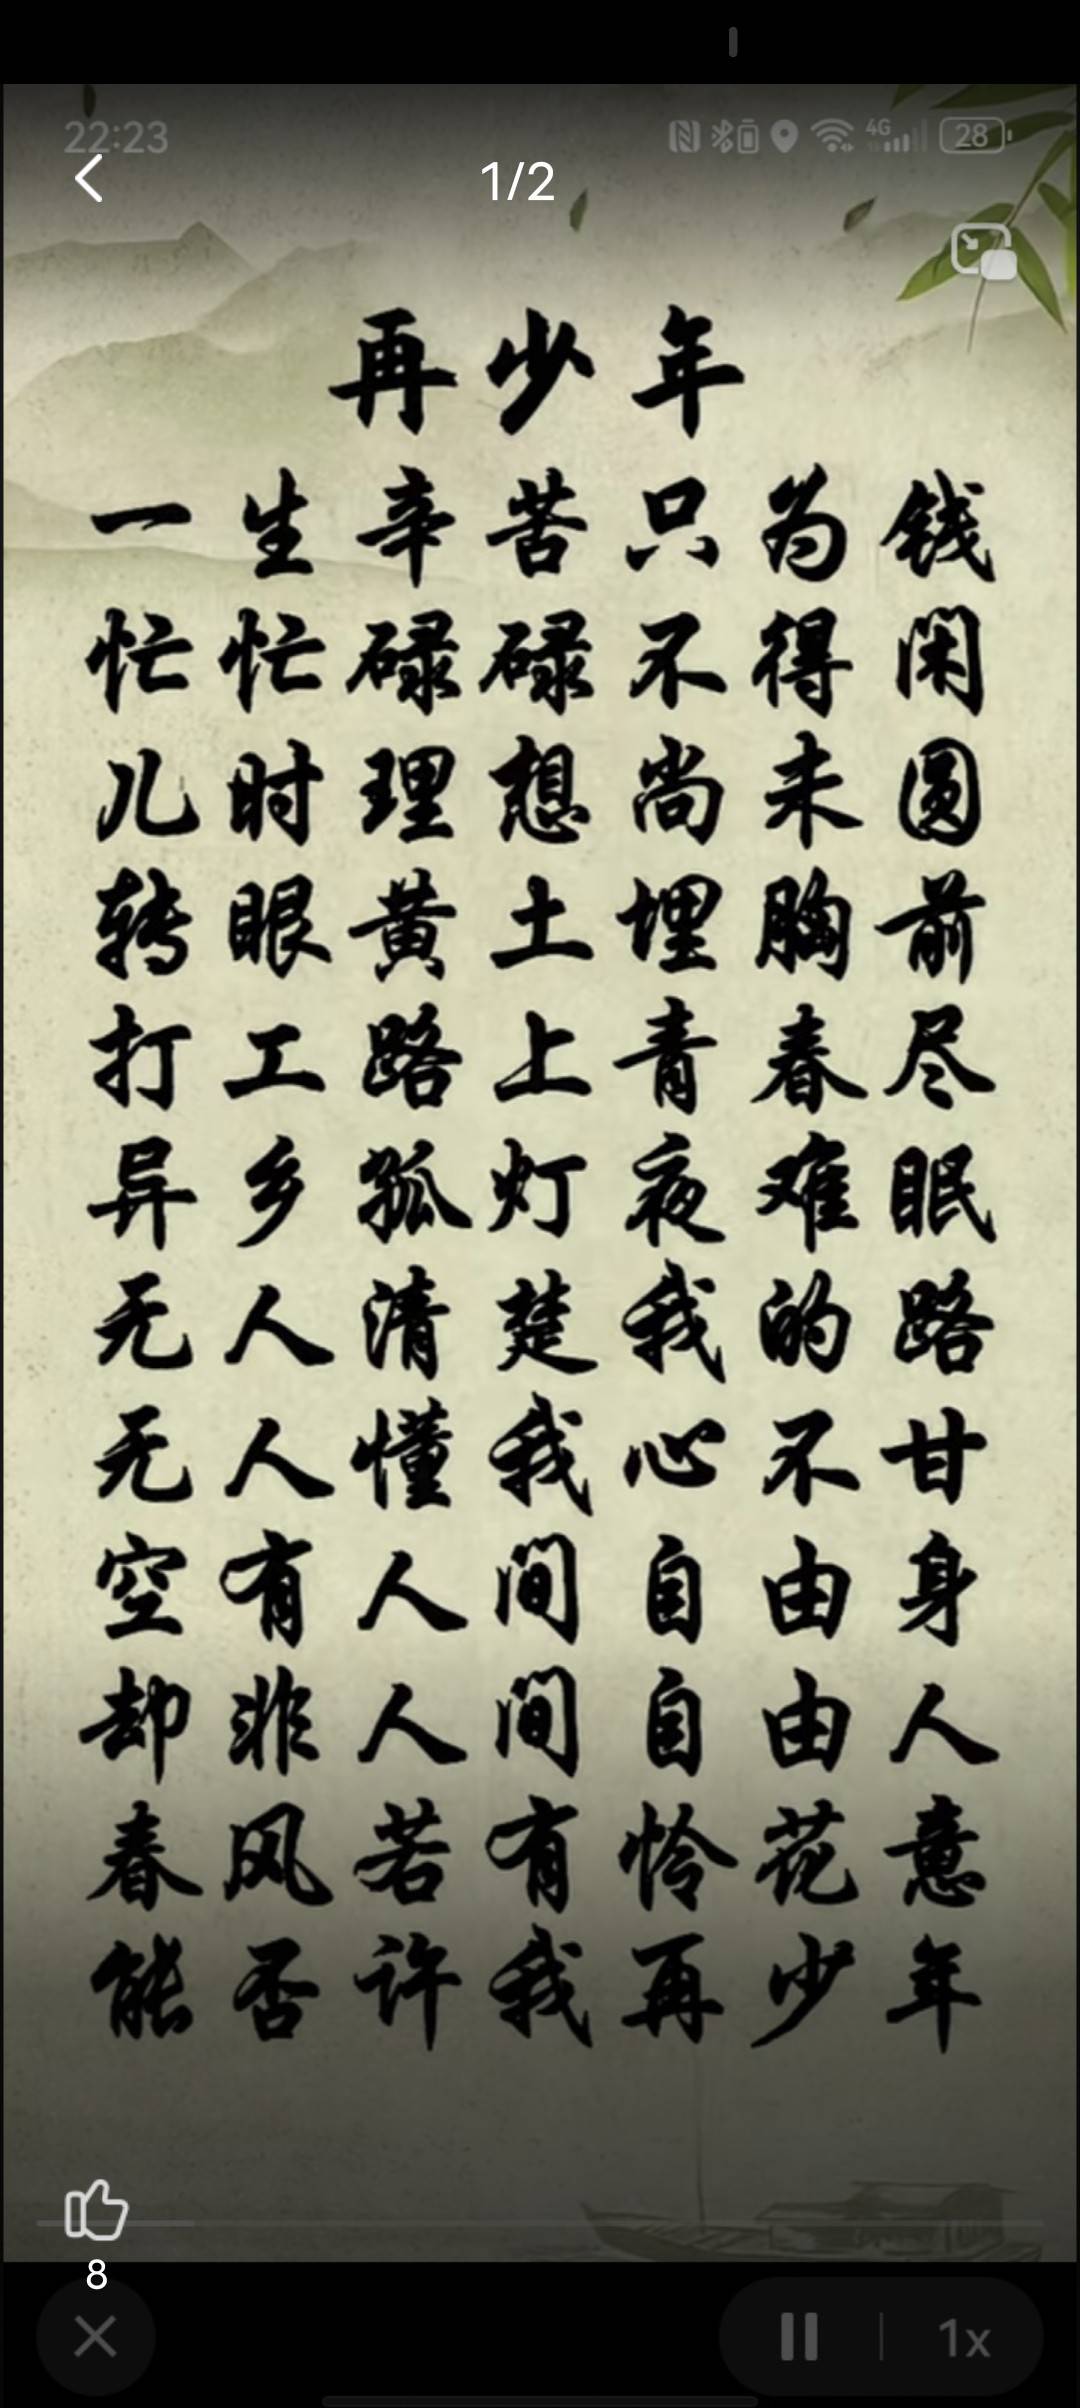 22:23
4G
28
1/2
再少年
一生辛苦只为钱
忙忙碌碌不得闲
儿时理想尚未圆
转眼黄土埋胸前
打工路上青春尽
异乡孤灯夜难眠
无人清楚我的路
无人懂我心不甘
空有人间自由身
却非人间自由人
春风若有怜花意
能否许我再少年
8
1x